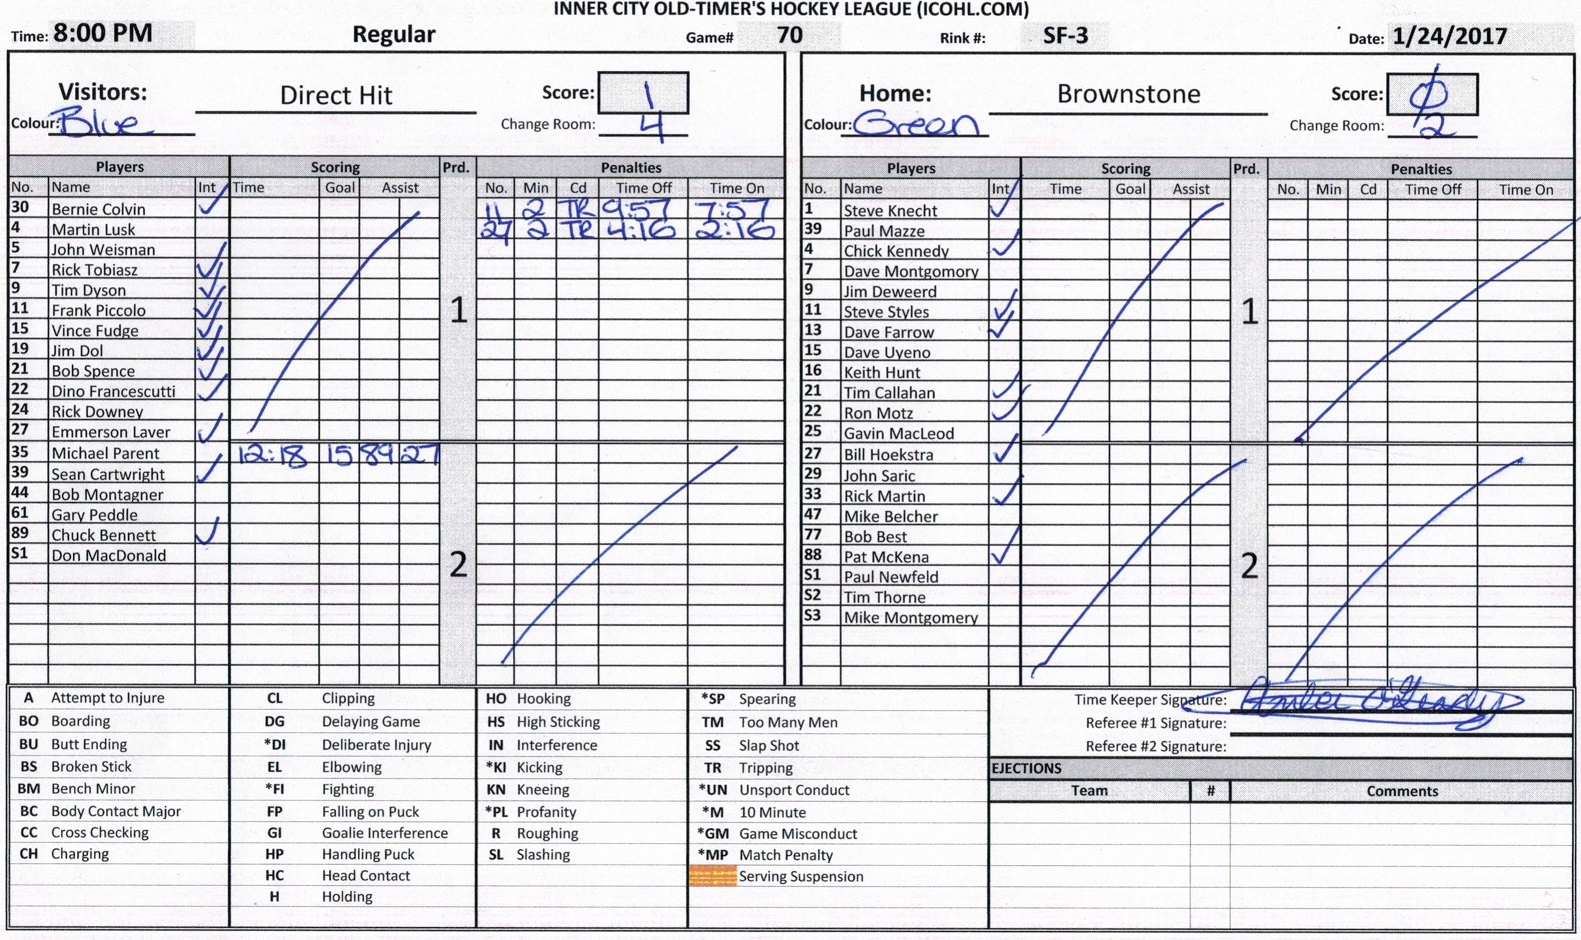 INNER CITY OLD-TIMER'S HOCKEY LEAGUE (ICOHL.COM)
Time: 8:00 PM Regular Game# 70 Rink #: SF-3 Date: 1/24/2017
Visitors: Direct Hit Score: 1
Colour: Blue Change Room: 4
Players Scoring Prd. Penalties
No. Name Int Time Goal Assist No. Min Cd Time Off Time On
30 Bernie Colvin 11 2 TR 9:57 7:57
4 Martin Lusk 27 2 TR 4:16 2:16
5 John Weisman
7 Rick Tobiasz
9 Tim Dyson
11 Frank Piccolo 1
15 Vince Fudge
19 Jim Dol
21 Bob Spence
22 Dino Francescutti
24 Rick Downey
27 Emmerson Laver
35 Michael Parent 12:18 15 89 27
39 Sean Cartwright
44 Bob Montagner
61 Gary Peddle
89 Chuck Bennett
S1 Don MacDonald 2
Home: Brownstone Score: 0
Colour: Green Change Room: 2
Players Scoring Prd. Penalties
No. Name Int Time Goal Assist No. Min Cd Time Off Time On
1 Steve Knecht
39 Paul Mazze
4 Chick Kennedy
7 Dave Montgomory
9 Jim Deweerd
11 Steve Styles 1
13 Dave Farrow
15 Dave Uyeno
16 Keith Hunt
21 Tim Callahan
22 Ron Motz
25 Gavin MacLeod
27 Bill Hoekstra
29 John Saric
33 Rick Martin
47 Mike Belcher
77 Bob Best
88 Pat McKena 2
S1 Paul Newfeld
S2 Tim Thorne
S3 Mike Montgomery
A Attempt to Injure
BO Boarding
BU Butt Ending
BS Broken Stick
BM Bench Minor
BC Body Contact Major
CC Cross Checking
CH Charging
CL Clipping
DG Delaying Game
*DI Deliberate Injury
EL Elbowing
*FI Fighting
FP Falling on Puck
GI Goalie Interference
HP Handling Puck
HC Head Contact
H Holding
HO Hooking
HS High Sticking
IN Interference
*KI Kicking
KN Kneeing
*PL Profanity
R Roughing
SL Slashing
*SP Spearing
TM Too Many Men
SS Slap Shot
TR Tripping
*UN Unsport Conduct
*M 10 Minute
*GM Game Misconduct
*MP Match Penalty
Serving Suspension
Time Keeper Signature:
Referee #1 Signature:
Referee #2 Signature:
EJECTIONS
Team # Comments